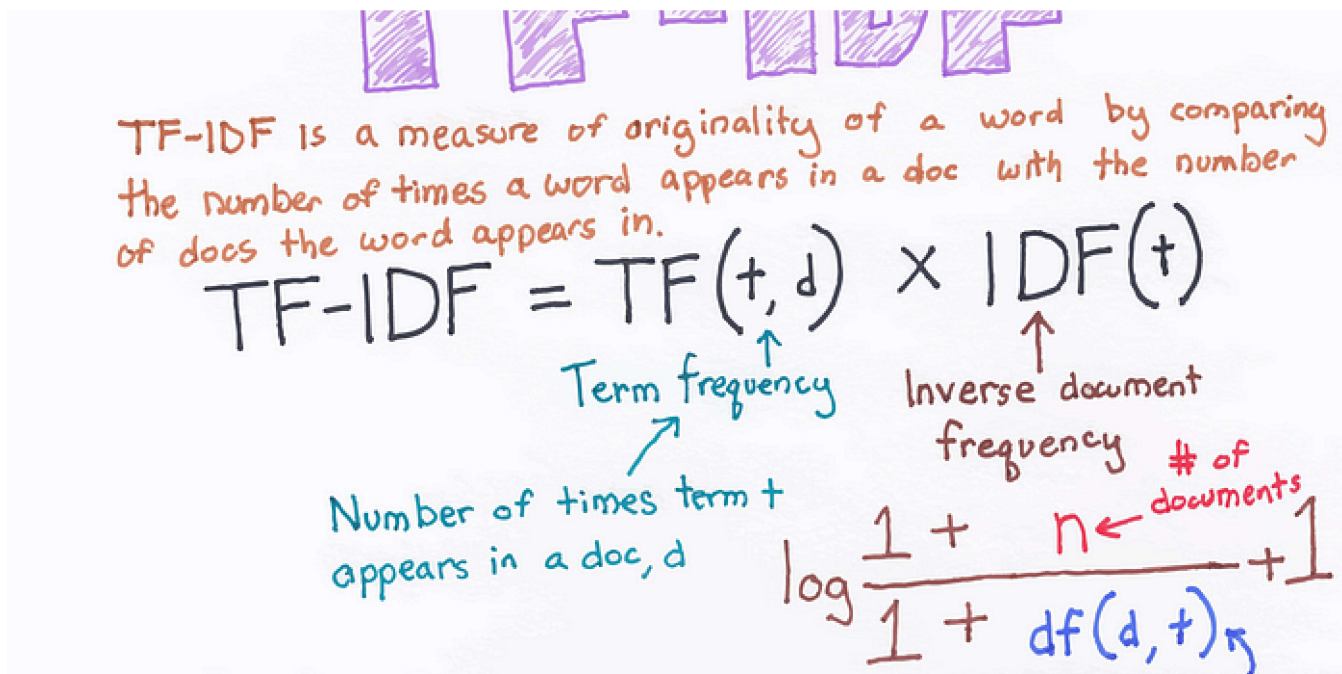 TF-IDF
TF-IDF is a measure of originality of a word by comparing
the number of times a word appears in a doc with the number
of docs the word appears in.
TF-IDF = TF(t, d) x IDF(t)
Term frequency
Inverse document
frequency
Number of times term t
appears in a doc, d
# of
documents
log 1 + n + 1
1 + df(d, t)